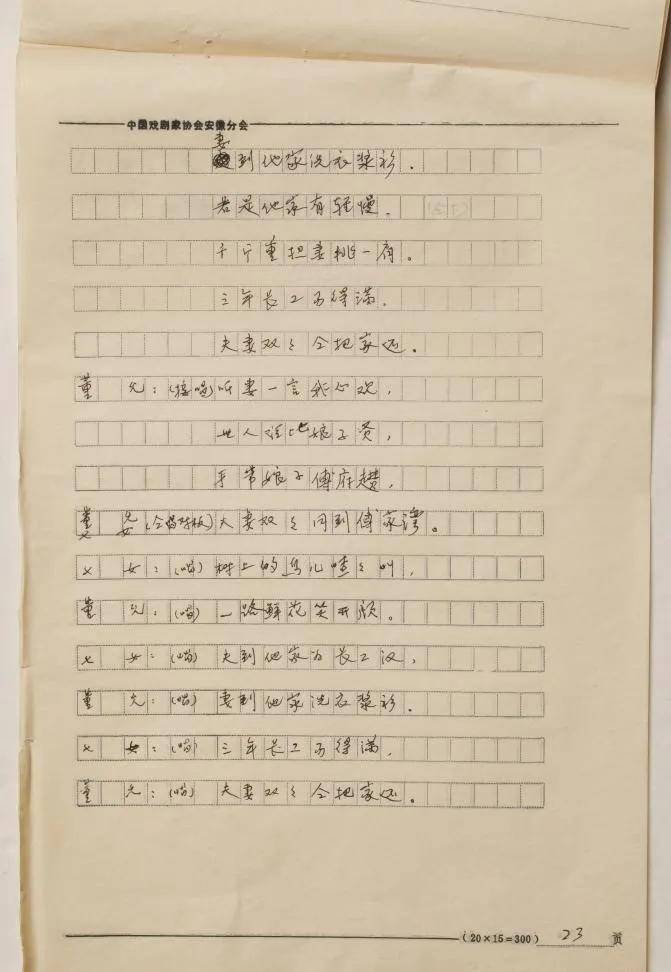 中国戏剧家协会安徽分会
妻到他家洗衣浆衫.
若是他家有轻慢,
千斤重担妻挑一肩。
三年长工百得满,
夫妻双〻今把家还。
董 允:(接唱)听妻一言我心欢,
世人谁比娘子贤,
手带娘子傅府趱,
董 允 七 女(合唱对板)夫妻双〻同到傅家湾。
七 女:(唱)树上的鸟儿喳〻叫,
董 允:(唱)一路鲜花笑开颜。
七 女:(唱)夫到他家为长工汉,
董 允:(唱)妻到他家洗衣浆衫.
七 女:(唱)三年长工百得满,
董 允:(唱)夫妻双〻今把家还。
(20×15=300) 23 页